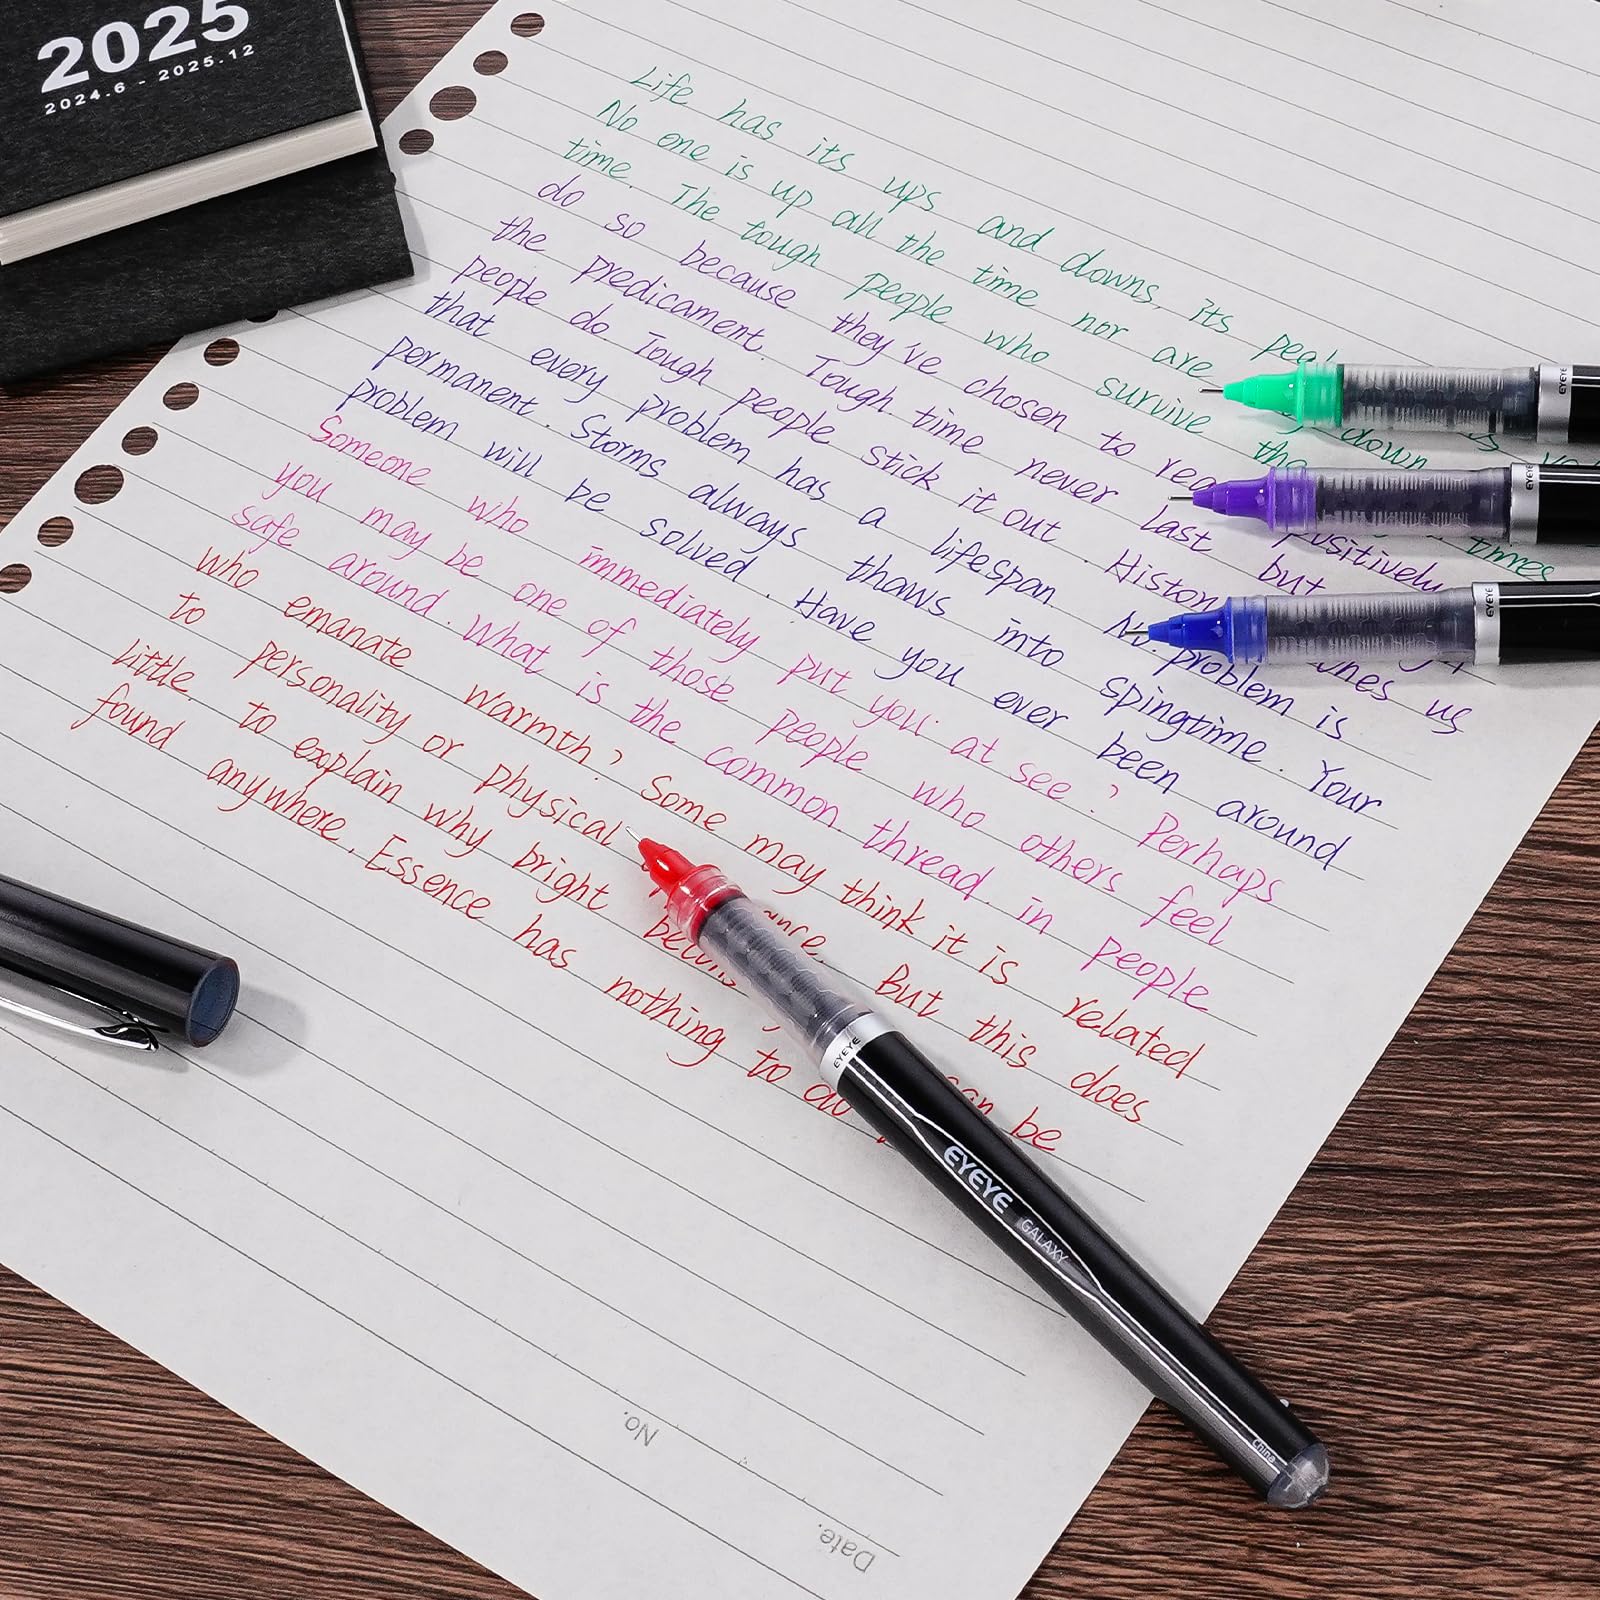 2025
2024.6 - 2025.12
Life has its ups and downs, its
No one is up all the time nor are down
time. The tough people who survive times
do so because they've chosen to positively
the predicament. Tough time never last but
people do. Tough people stick it out. us
that every problem has a lifespan. No problem is
permanent. Storms always thaws into spingtime. Your
problem will be solved. Have you ever been around
Someone who immediately put you at see? Perhaps
you may be one of those people who others feel
safe around. What is the common thread in people
who emanate warmth? Some may think it is related
to personality or physical But this does
little to explain why bright can be
found anywhere. Essence has nothing to do
EYEYE
EYEYE
EYEYE
EYEYE
EYEYE GALAXY
China
No.
Date.